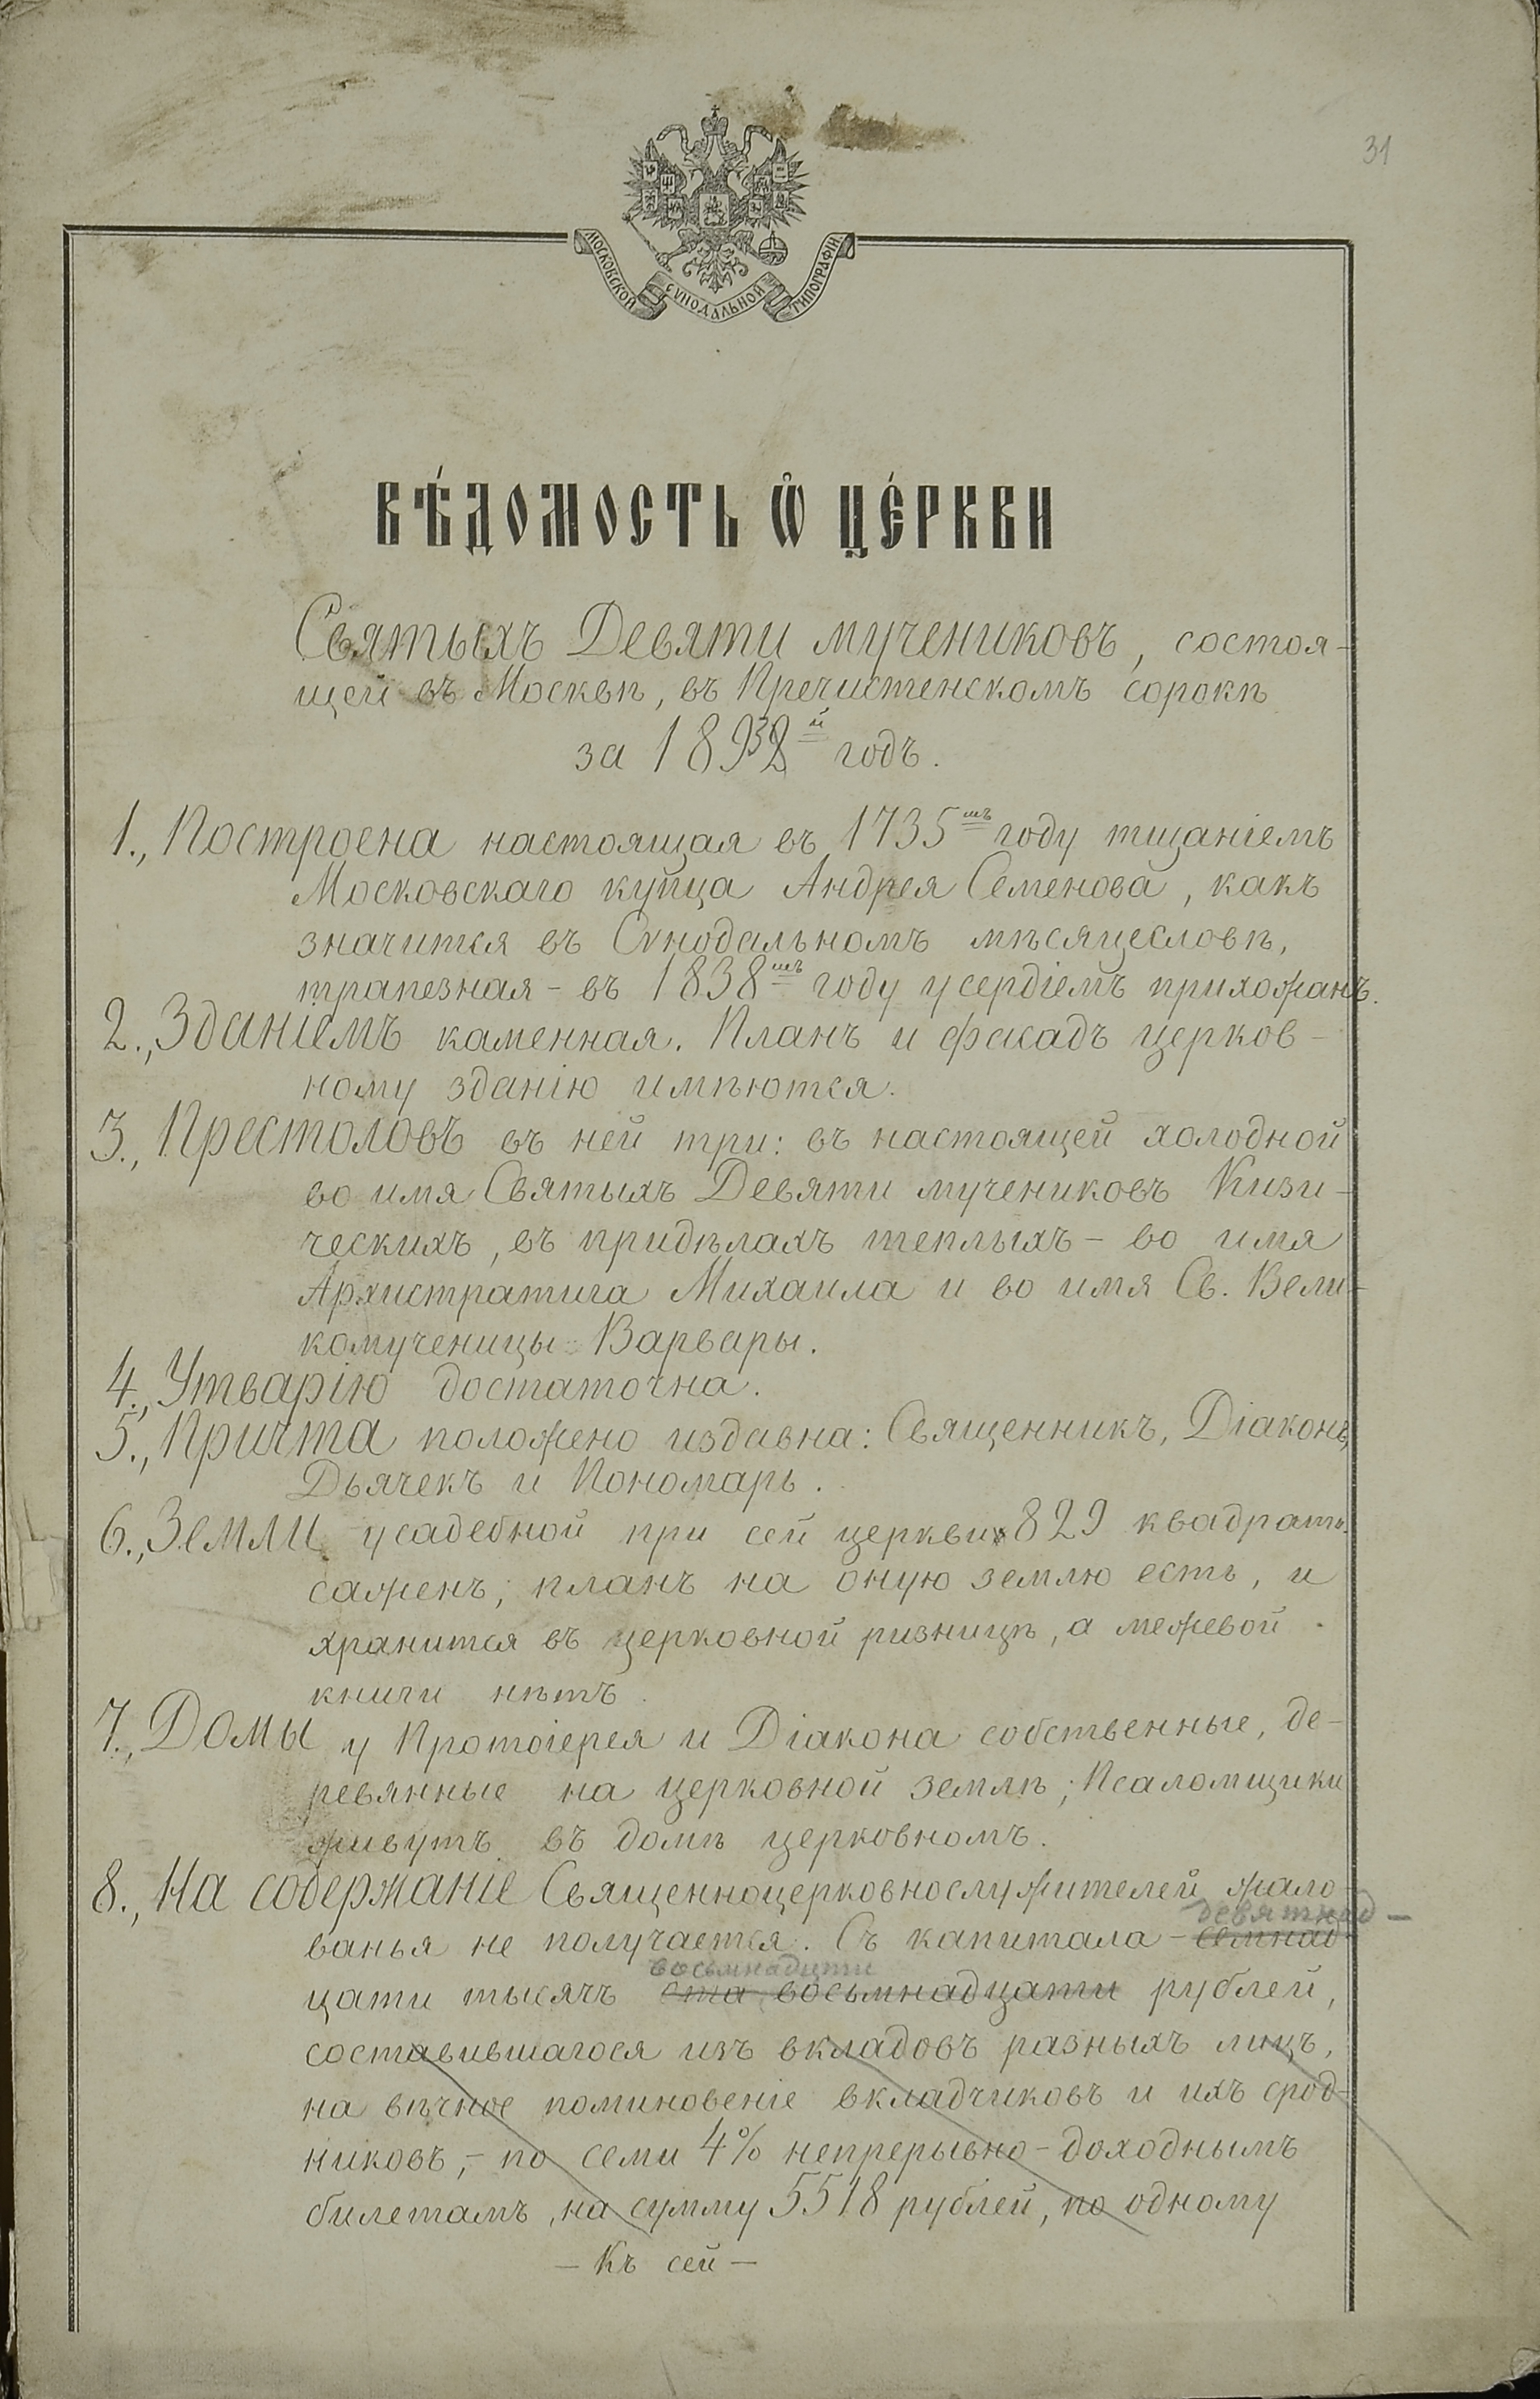 31
МОСКОВСКОЙ СѴНОДАЛЬНОЙ ТИПОГРАФІИ
ВѢ́ДОМОСТЬ Ѽ ЦЕ́РКВИ
Святыхъ Девяти мучениковъ, состоя-
щей въ Москвѣ, въ Пречистенскомъ сорокѣ
за 1893й годъ.
1., Построена настоящая въ 1735мъ году тщаніемъ
Московскаго купца Андрея Семенова, какъ
значится въ Сѵнодальномъ мѣсяцесловѣ,
трапезная - въ 1838мъ году усердіемъ прихожанъ.
2., Зданіемъ каменная. Планъ и фасадъ церков-
ному зданію имѣются.
3., Престоловъ въ ней три: въ настоящей холодной
во имя Святыхъ Девяти мучениковъ Кизи-
ческихъ, въ придѣлахъ теплыхъ - во имя
Архистратига Михаила и во имя Св. Вели-
комученицы Варвары.
4., Утварію достаточна.
5., Причта положено издавна: Священникъ, Діаконъ,
Дьячекъ и Пономарь.
6., Земли усадебной при сей церкви 829 квадратн.
сажень; планъ на оную землю есть, и
хранится въ церковной ризницѣ, а межевой
книги нѣтъ.
7., Домы у Протоіерея и Діакона собственные, де-
ревянные на церковной землѣ; Псаломщики
живутъ въ домѣ церковномъ.
8., На содержаніе Священноцерковнослужителей жало-
девятнад-
ванья не получается. Съ капитала - семнад-
восьмнадцати
цати тысячъ ста восьмнадцати рублей,
составившагося изъ вкладовъ разныхъ лицъ,
на вѣчное поминовеніе вкладчиковъ и ихъ срод-
никовъ, - по семи 4% непрерывно-доходнымъ
билетамъ, на сумму 5518 рублей, по одному
- Къ сей -